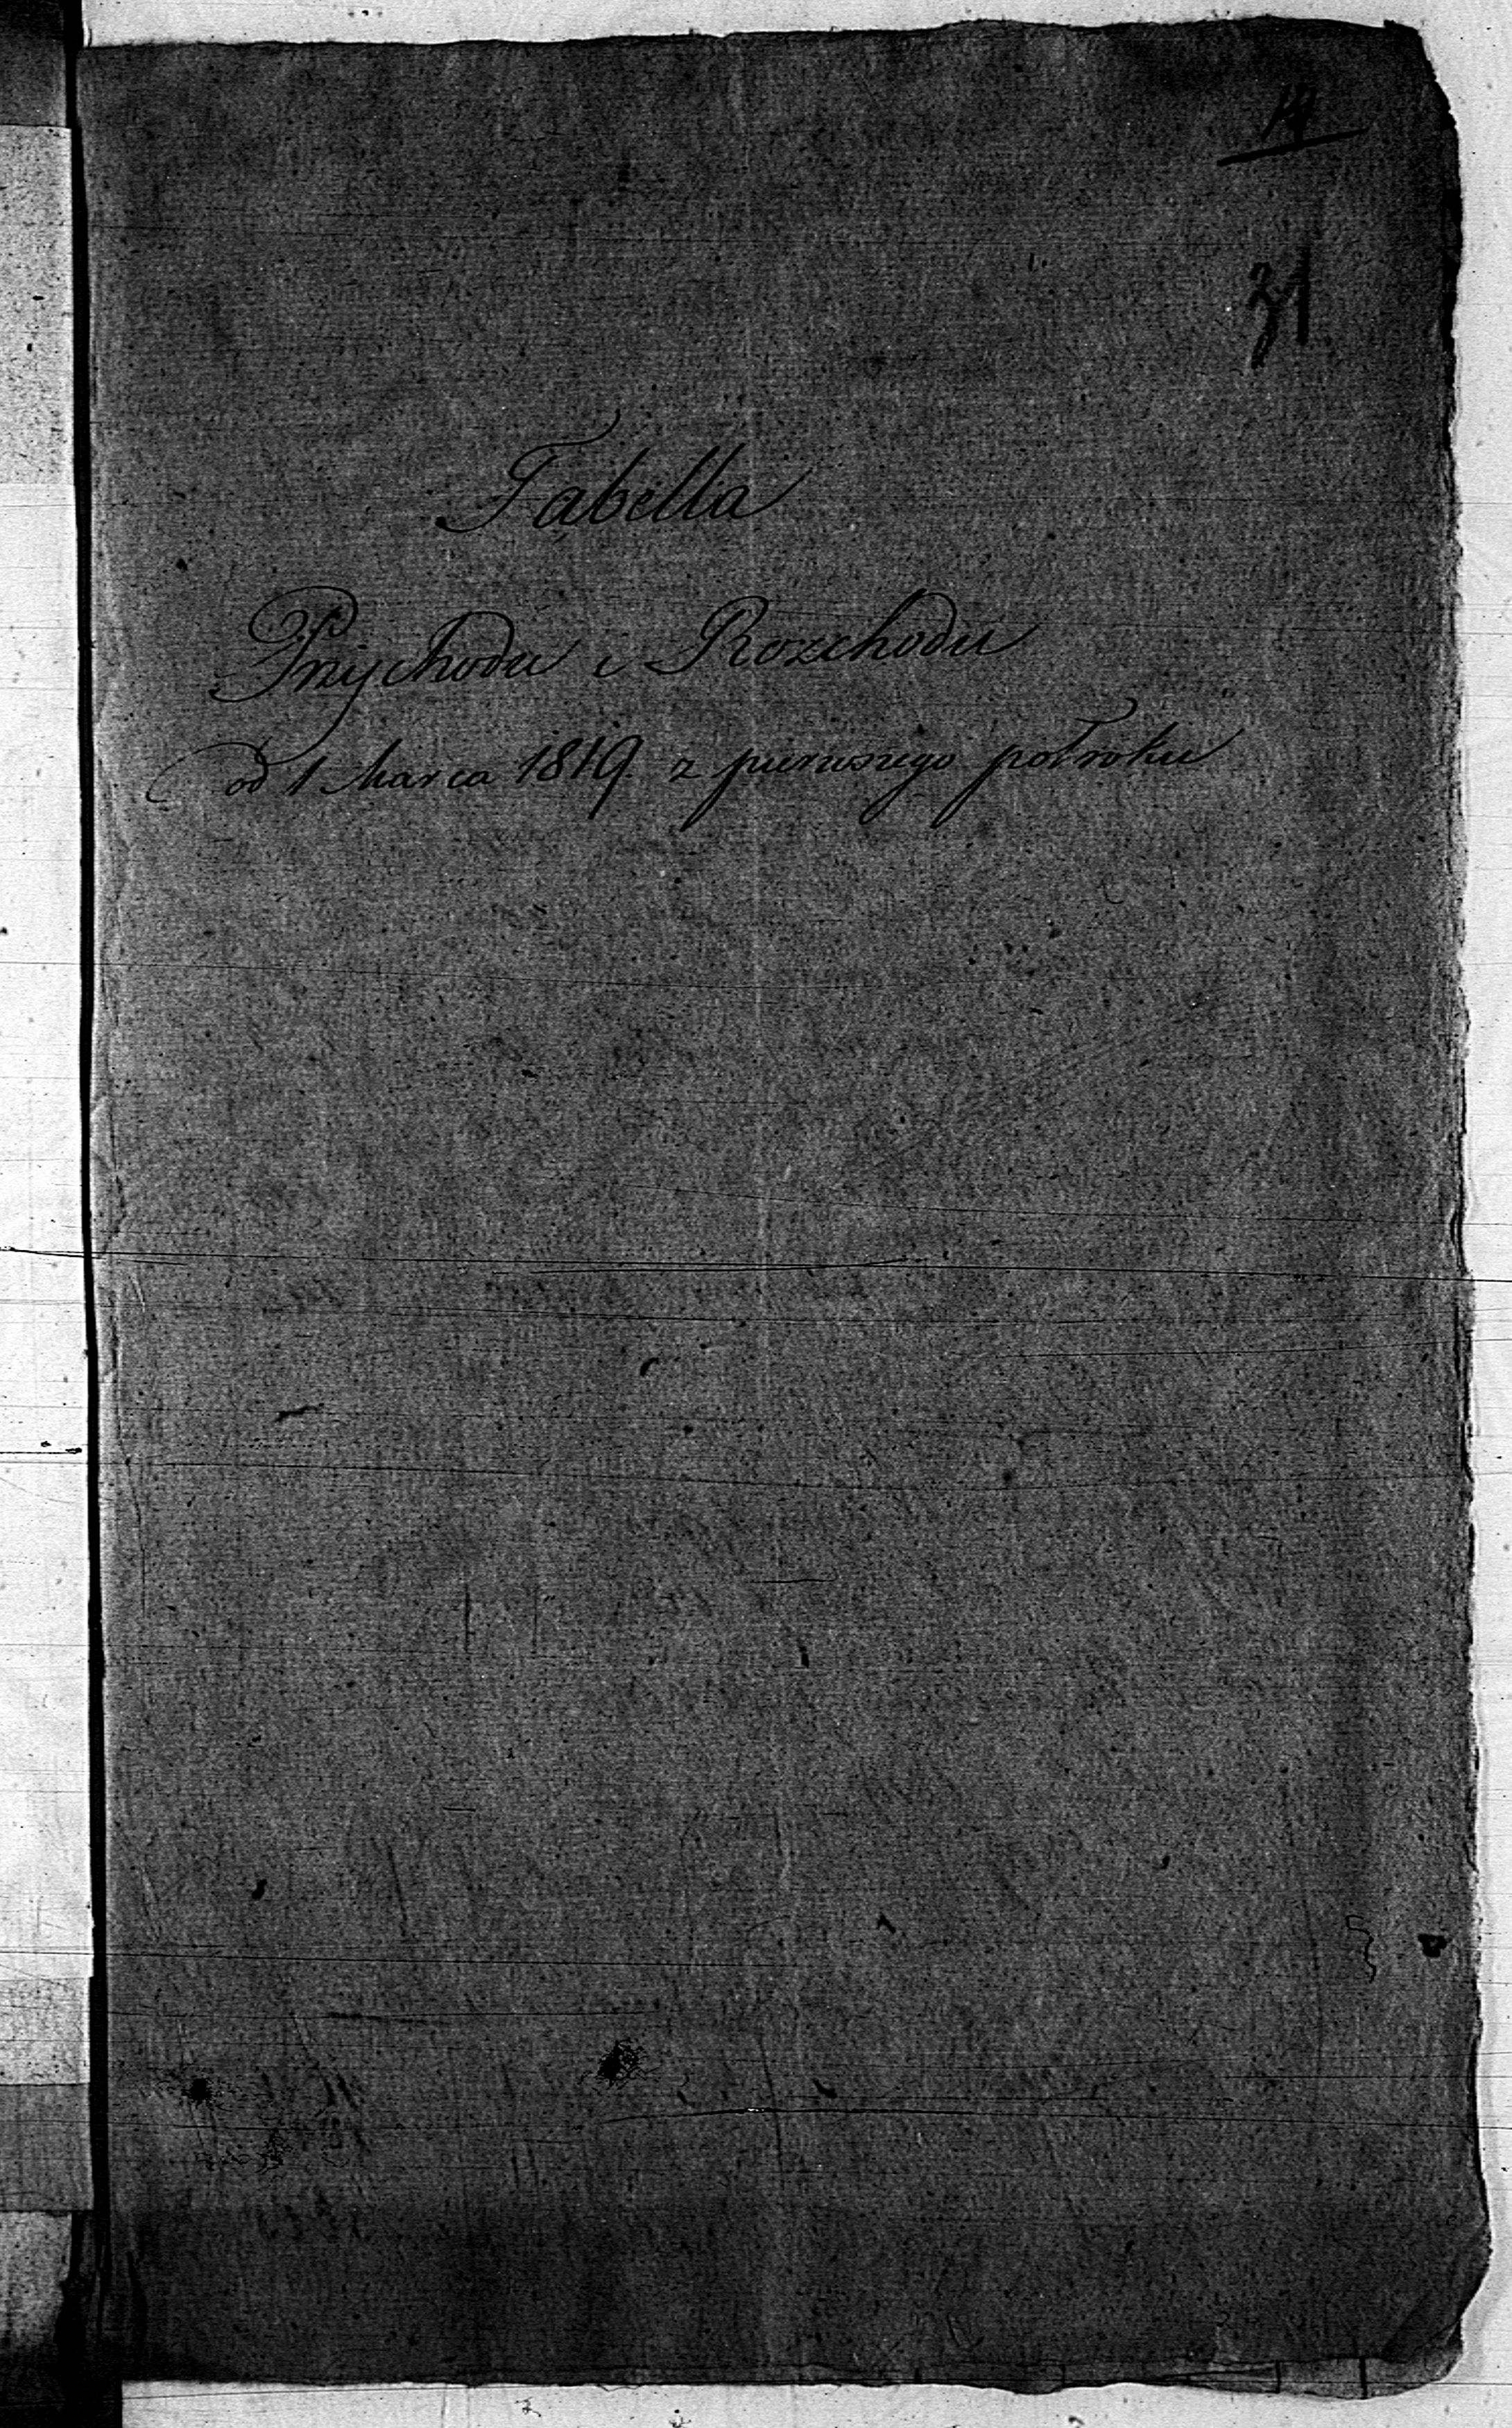 14
31
Tabella
Przychodu i Rozchodu
od 1 Marca 1819. z pierwszego półroku